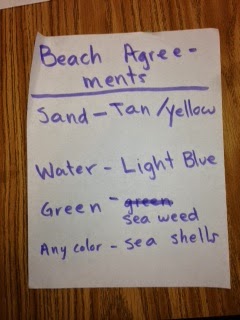 Beach Agree-
ments
Sand - Tan/Yellow
Water - Light Blue
Green - green
sea weed
Any color - sea shells